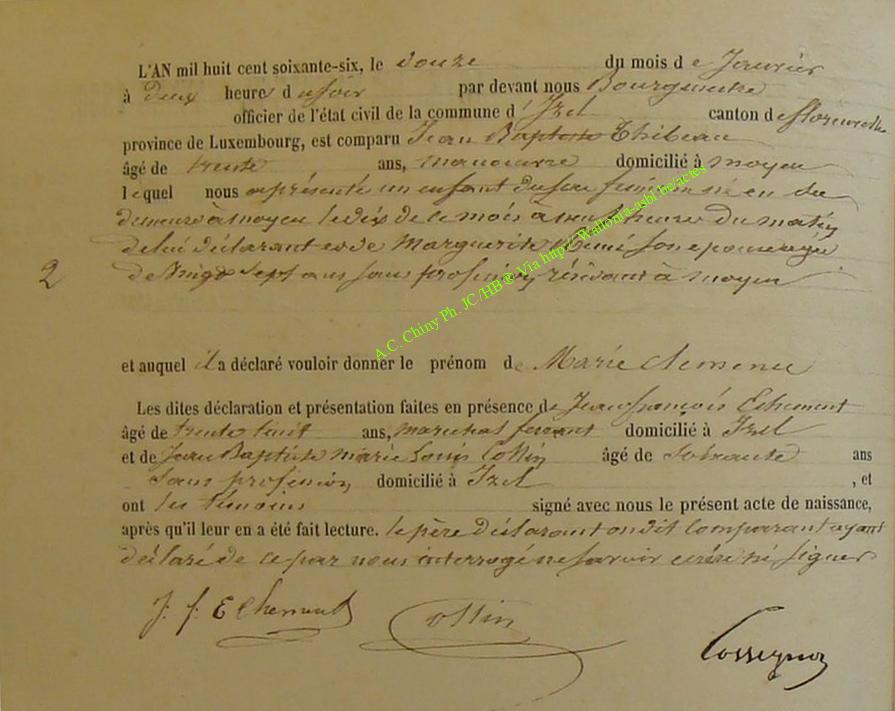 L'AN mil huit cent soixante-six, le douze du mois de Janvier
à deux heures du soir par devant nous Bourgmestre
officier de l'état civil de la commune d'Izel canton de florenville
province de Luxembourg, est comparu Jean Baptiste Thibeau
âgé de trente ans, manouvre domicilié à moyen
lequel nous a présenté un enfant du sexe féminin né en sa
demeure à moyen le dix de ce mois à neuf heure du matin
de lui déclarant et de Marguerite Remi son epouse agée
de vingt sept ans sans profession, résidant à moyen
2
et auquel il a déclaré vouloir donner le prénom de Marie Clemence
Les dites déclaration et présentation faites en présence de Jean françois Echement
âgé de trente huit ans, marechal ferrant domicilié à Izel
et de Jean Baptiste marie Louis Collin âgé de soixante ans
sans profession, domicilié à Izel, et
ont les témoins signé avec nous le présent acte de naissance,
après qu'il leur en a été fait lecture. le père déclarant ondit comparant ayant
déclaré de ce par nous interrogé ne savoir ecrire ni signer
J. f. Echement Collin
A.C. Chiny Ph. JC /HB® Via http://Wallonia-asbl.be/actes